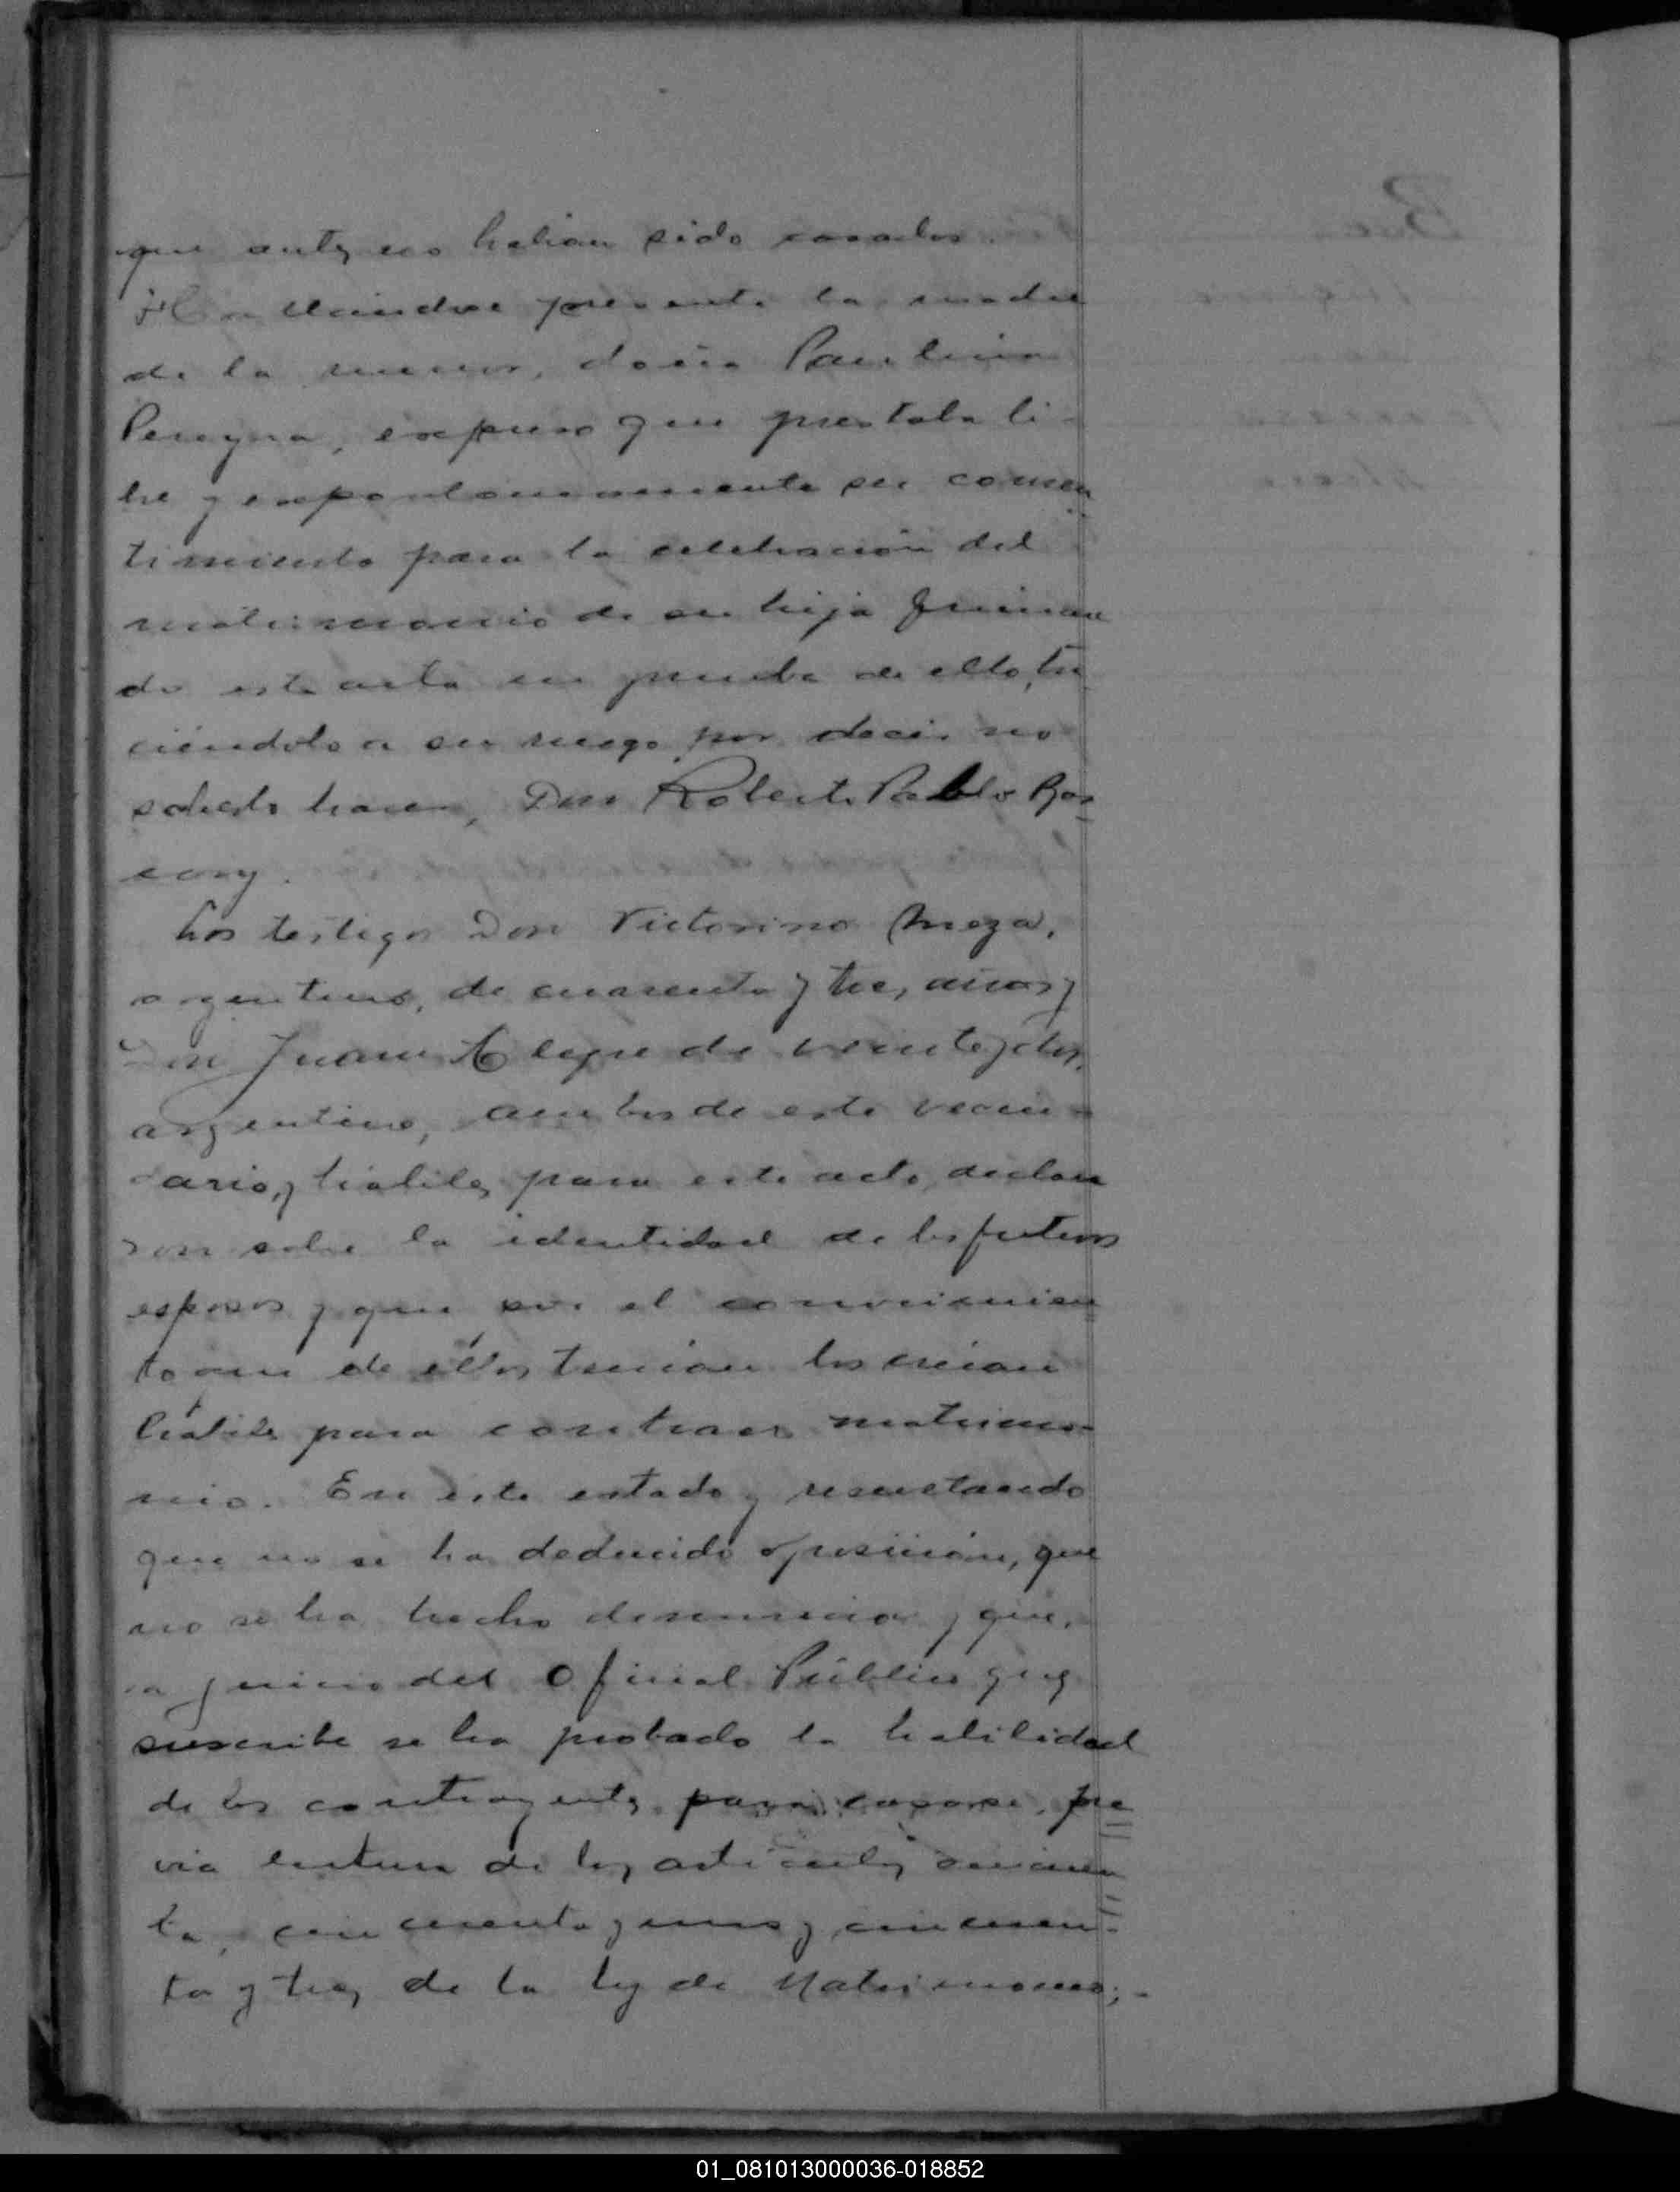 que antes no habian sido casados.
Hallándose presente la madre
de la menor, doña Paulina
Pereyra, expuso que prestaba li-
bre y expontaneamente su consen
timiento para la celebración del
matrimonio de su hija firman
do esta acta en prueba de ello, ha
ciéndolo a su ruego por decir no
saberlo hacer, Don Roberto Pablo Ros
Los testigos Don Victorino Meza,
argentino, de cuarenta y tres años y
Don Juan de veinte y dos,
argentino, ambos de este vecin-
dario, y hábiles para este acto, declara
ron sobre la identidad de los futuros
esposos y que por el conocimien
to que de ellos tenian los creian
hábiles para contraer matrimo-
nio. En este estado y resultando
que no se ha deducido oposición, que
no se ha hecho denuncia y que,
a juicio del Oficial Público que
suscribe se ha probado la habilidad
de los contrayentes para casarse, pre
via lectura de los artículos cincuen
ta, cincuenta y uno y cincuen-
ta y tres de la ley de Matrimonio;-
01_081013000036-018852